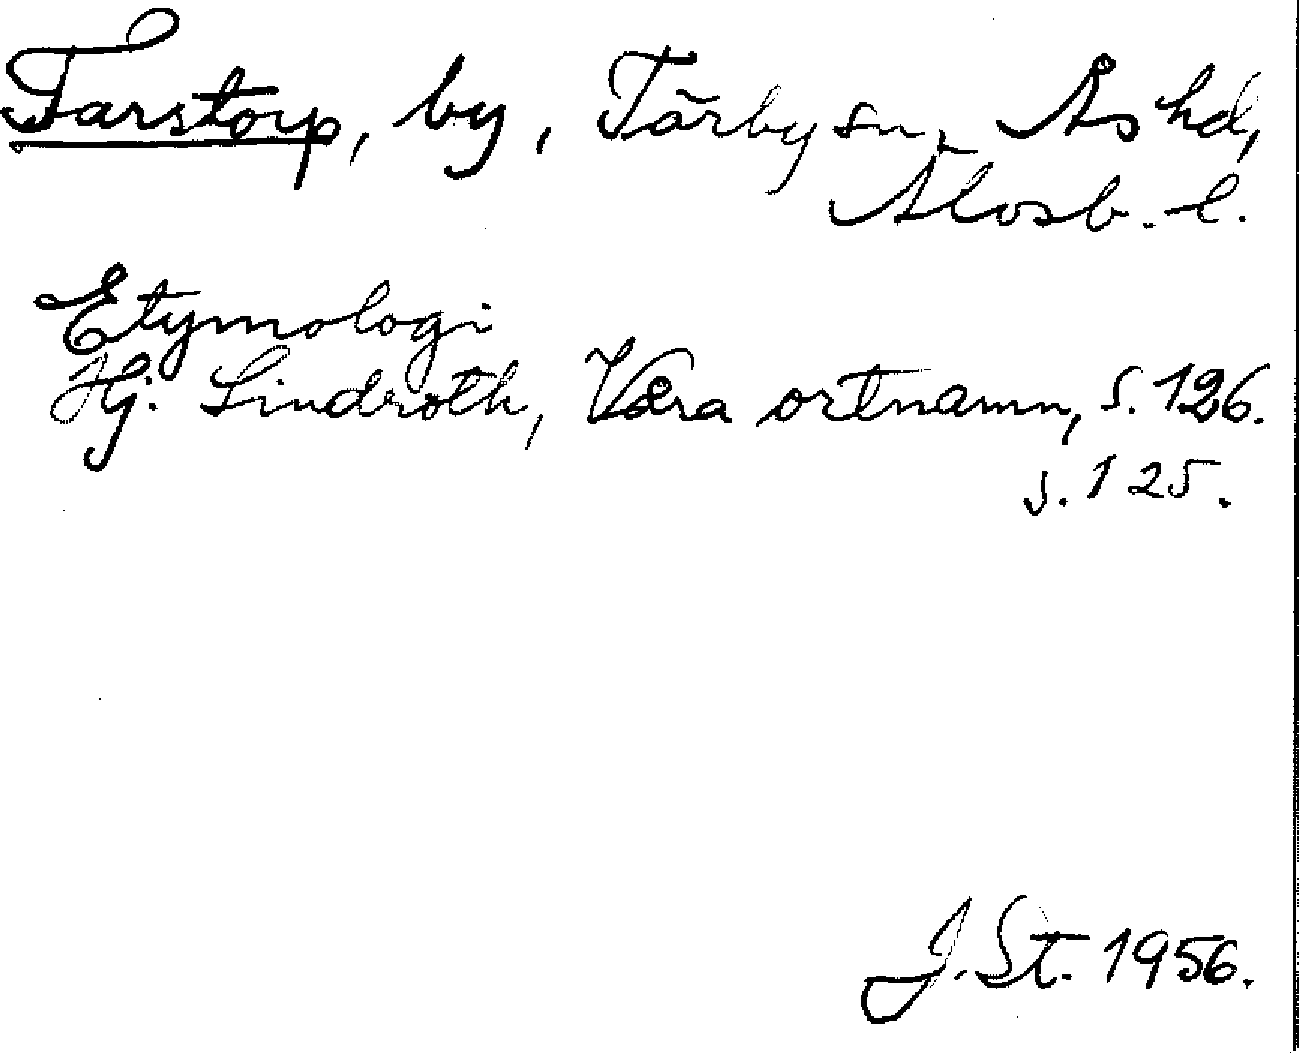 Tarstorp, by, Tärby sn, Ås hd,
Älvsb. l.
Etymologi
Hj. Lindroth, Våra ortnamn, s. 126.
s. 125.
J. St. 1956.